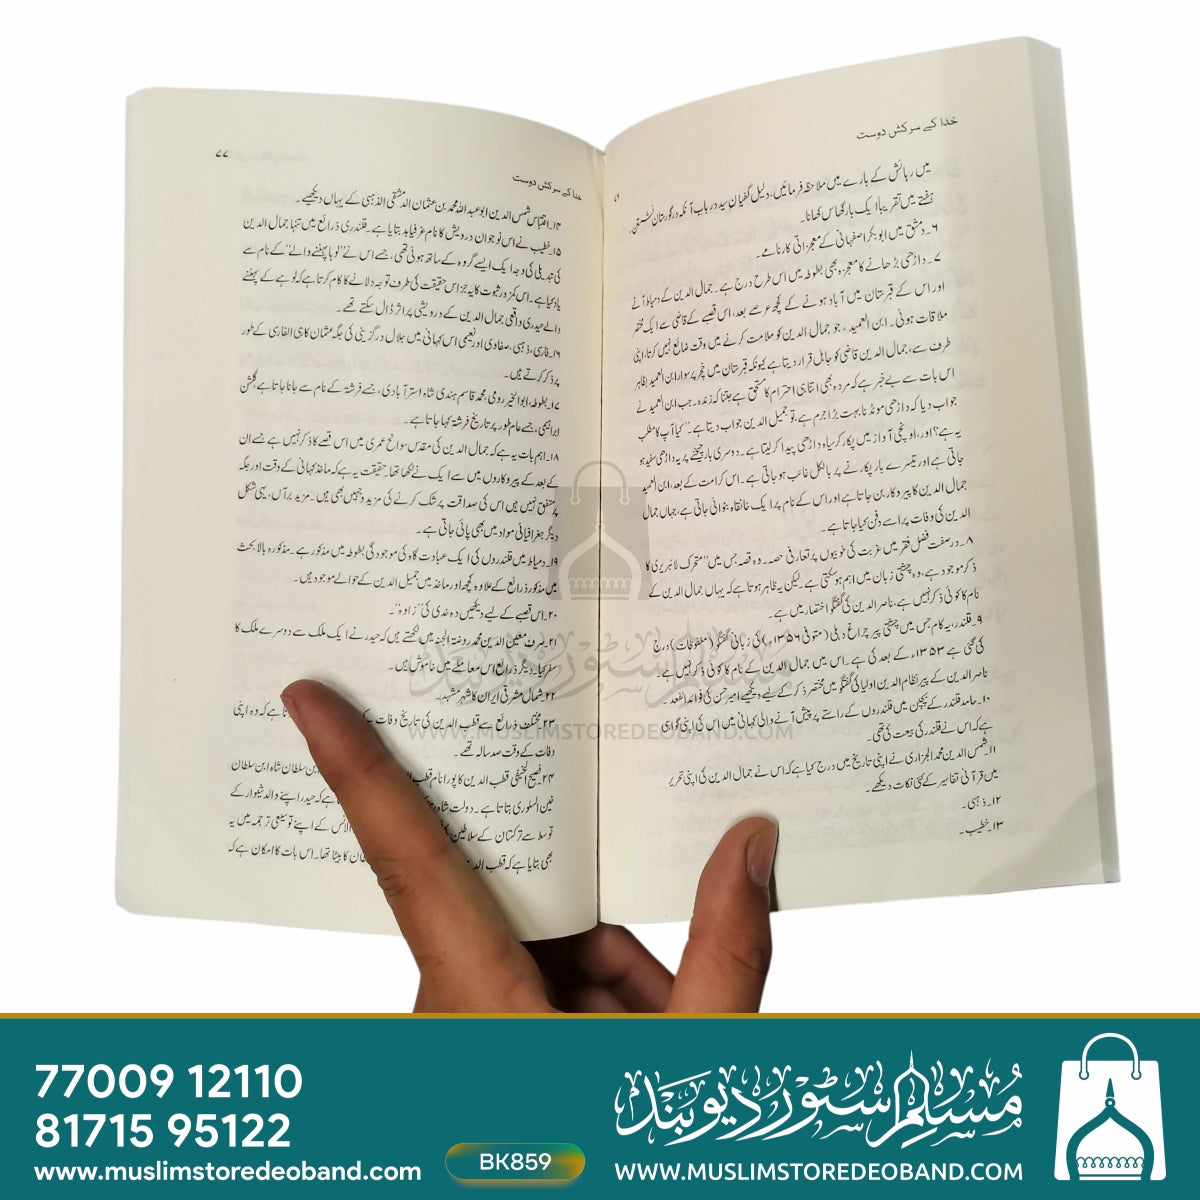 خدا کے سرکش دوست
میں رہائش کے بارے میں ملاحظہ فرمائیں، دلیل گفیان سید در باب آنکہ در گورستان نشستن۔
ہفتے میں تقریباً ایک بار گھاس کھانا۔
۶۔ دمشق میں ابوبکر اصفہانی کے معجزاتی کارنامے۔
۷۔ داڑھی بڑھانے کا معجزہ بھی بطوطہ میں اس طرح درج ہے۔ جمال الدین کے دمیاط آنے
اور اس کے قبرستان میں آباد ہونے کے کچھ عرصے بعد، اس قصبے کے قاضی سے ایک مختصر
ملاقات ہوئی۔ ابن العمید، جو جمال الدین کو ملامت کرنے میں وقت ضائع نہیں کرتا، اپنی
طرف سے، جمال الدین قاضی کو جاہل قرار دیتا ہے کیونکہ قبرستان میں خچر پر سوار ابن العمید بظاہر
اس بات سے بے خبر ہے کہ مردہ بھی اتنا ہی احترام کا مستحق ہے جتنا کہ زندہ۔ جب ابن العمید نے
جواب دیا کہ داڑھی مونڈنا بہت بڑا جرم ہے، تو جمیل الدین جواب دیتا ہے۔ "کیا آپ کا مطلب
یہ ہے؟ اور، اونچی آواز میں پکار کر سیاہ داڑھی پیدا کر لیتا ہے۔ دوسری بار چیخنے پر یہ داڑھی سفید ہو
جاتی ہے اور تیسرے بار پکارنے پر بالکل غائب ہو جاتی ہے۔ اس کرامت کے بعد، ابن العمید
جمال الدین کا پیروکار بن جاتا ہے اور اس کے نام پر ایک خانقاہ بنوائی جاتی ہے، جہاں جمال
الدین کی وفات پر اسے دفن کیا جاتا ہے۔
۸۔ در صفت فضل فقر میں غربت کی خوبیوں پر تعارفی حصہ۔ وہ قصہ جس میں "متحرک لائبریری کا
ذکر موجود ہے، وہ چشتی زبان میں اہم ہو سکتی ہے۔ لیکن یہ ظاہر ہوتا ہے کہ یہاں جمال الدین کے
نام کا کوئی ذکر نہیں ہے، ناصر الدین کی گفتگو اختصار میں ہے۔
۹۔ قلندر، یہ کام جس میں چشتی پیر چراغ دہلی (متوفی ۱۳۵۶ء) کی زبانی گفتگو (ملفوظات) درج
کی گئی ہے ۱۳۵۳ء کے بعد کی ہے۔ اس میں جمال الدین کے نام کا کوئی ذکر نہیں ہے۔
ناصر الدین کے پیر نظام الدین اولیا کی گفتگو میں مختصر ذکر کے لیے دیکھیے امیر حسن کی فوائد الفعد۔
۱۰۔ حامد قلندر کے بچپن میں قلندروں کے راستے پر پیش آنے والی کہانی میں اس کی اپنی گواہی
ہے کہ اس نے قلندر کی بیعت کی تھی۔
۱۱۔ شمس الدین محمد الجزاری نے اپنی تاریخ میں درج کیا ہے کہ اس نے جمال الدین کی اپنی تحریر
میں قرآنی تفاسیر کے کئی نکات دیکھے۔
۱۲۔ ذہبی۔
۱۳۔ خطیب۔
خدا کے سرکش دوست ۷۷
۱۴۔ اقتباس شمس الدین ابو عبداللہ محمد بن عثمان الدمشقی الذہبی کے یہاں دیکھیے۔
۱۵۔ خطیب نے اس نوجوان درویش کا نام عرفیا ہد بتایا ہے۔ قلندری ذرائع میں تنہا جمال الدین
کی تبدیلی کی وجہ ایک ایسے گروہ کے ساتھ ہوئی تھی، جسے اس نے "لوہا پہننے والے" کے نام سے
یاد کیا ہے۔ اس کمزور ثبوت کا یہ جز اس حقیقت کی طرف توجہ دلانے کا کام کرتا ہے کہ لوہے کے پہننے
والے حیدری واقعی جمال الدین کے درویشی پر اثر ڈال سکتے تھے۔
۱۶۔ فارسی، ذہبی، صفاوی اور نعیمی اس کہانی میں جلال درگزینی کی جگہ عثمان کاہی الفارسی کے طور
پر ذکر کرتے ہیں۔
۱۷۔ بطوطہ، ابوالخیر رومی، محمد قاسم ہندی شاہ استرآبادی، جسے فرشتہ کے نام سے جانا جاتا ہے، گلشن
ابراہیمی، جسے عام طور پر تاریخ فرشتہ کہا جاتا ہے۔
۱۸۔ اہم بات یہ ہے کہ جمال الدین کی مقدس سوانح عمری میں اس قصے کا ذکر نہیں ہے جسے ان
کے بعد کے پیروکاروں میں سے ایک نے لکھا تھا۔ حقیقت یہ ہے کہ ماخذ کہانی کے وقت اور جگہ
پر متفق نہیں ہیں اس کی صداقت پر شک کرنے کی مزید وجہیں بھی ہیں۔ مزید برآں، یہی شکل
دیگر جغرافیائی مواد میں بھی پائی جاتی ہے۔
۱۹۔ دمیاط میں قلندروں کی ایک عبادت گاہ کی موجودگی بطوطہ میں مذکور ہے۔ مذکورہ بالا بحث
میں مذکور ذرائع کے علاوہ کچھ اور ماخذ میں جمیل الدین کے حوالے موجود ہیں۔
۲۰۔ اس قصبے کے لیے دیکھیں دہ خدی کی "زاوہ"۔
۲۱۔ صرف معین الدین محمد روضۃ الجنہ میں لکھتے ہیں کہ حیدر نے ایک ملک سے دوسرے ملک کا
سفر کیا۔ دیگر ذرائع اس معاملے میں خاموش ہیں۔
۲۲۔ شمال مشرقی ایران کا شہر مشہد۔
۲۳۔ مختلف ذرائع سے قطب الدین کی تاریخ وفات ہے کہ وہ اپنی
وفات کے وقت صد سالہ تھے۔
۲۴۔ فصیح الخیفی قطب الدین کا پورا نام قطب ابن سلطان شاہ ابن سلطان
غین السلوری بتاتا ہے۔ دولت شاہ ہے کہ حیدر اپنے والد شہوار کے
توسط سے ترکستان کے سلاطین کی الانس کے اپنے توسیعی ترجمہ میں یہ
بھی بتایا ہے کہ قطب الدین کا بیٹا تھا۔ اس بات کا امکان ہے کہ
مسلم سٹور دیوبند
WWW.MUSLIMSTOREDEOBAND.COM
77009 12110
81715 95122
www.muslimstoredeoband.com
BK859
مسلم سٹور دیوبند
WWW.MUSLIMSTOREDEOBAND.COM